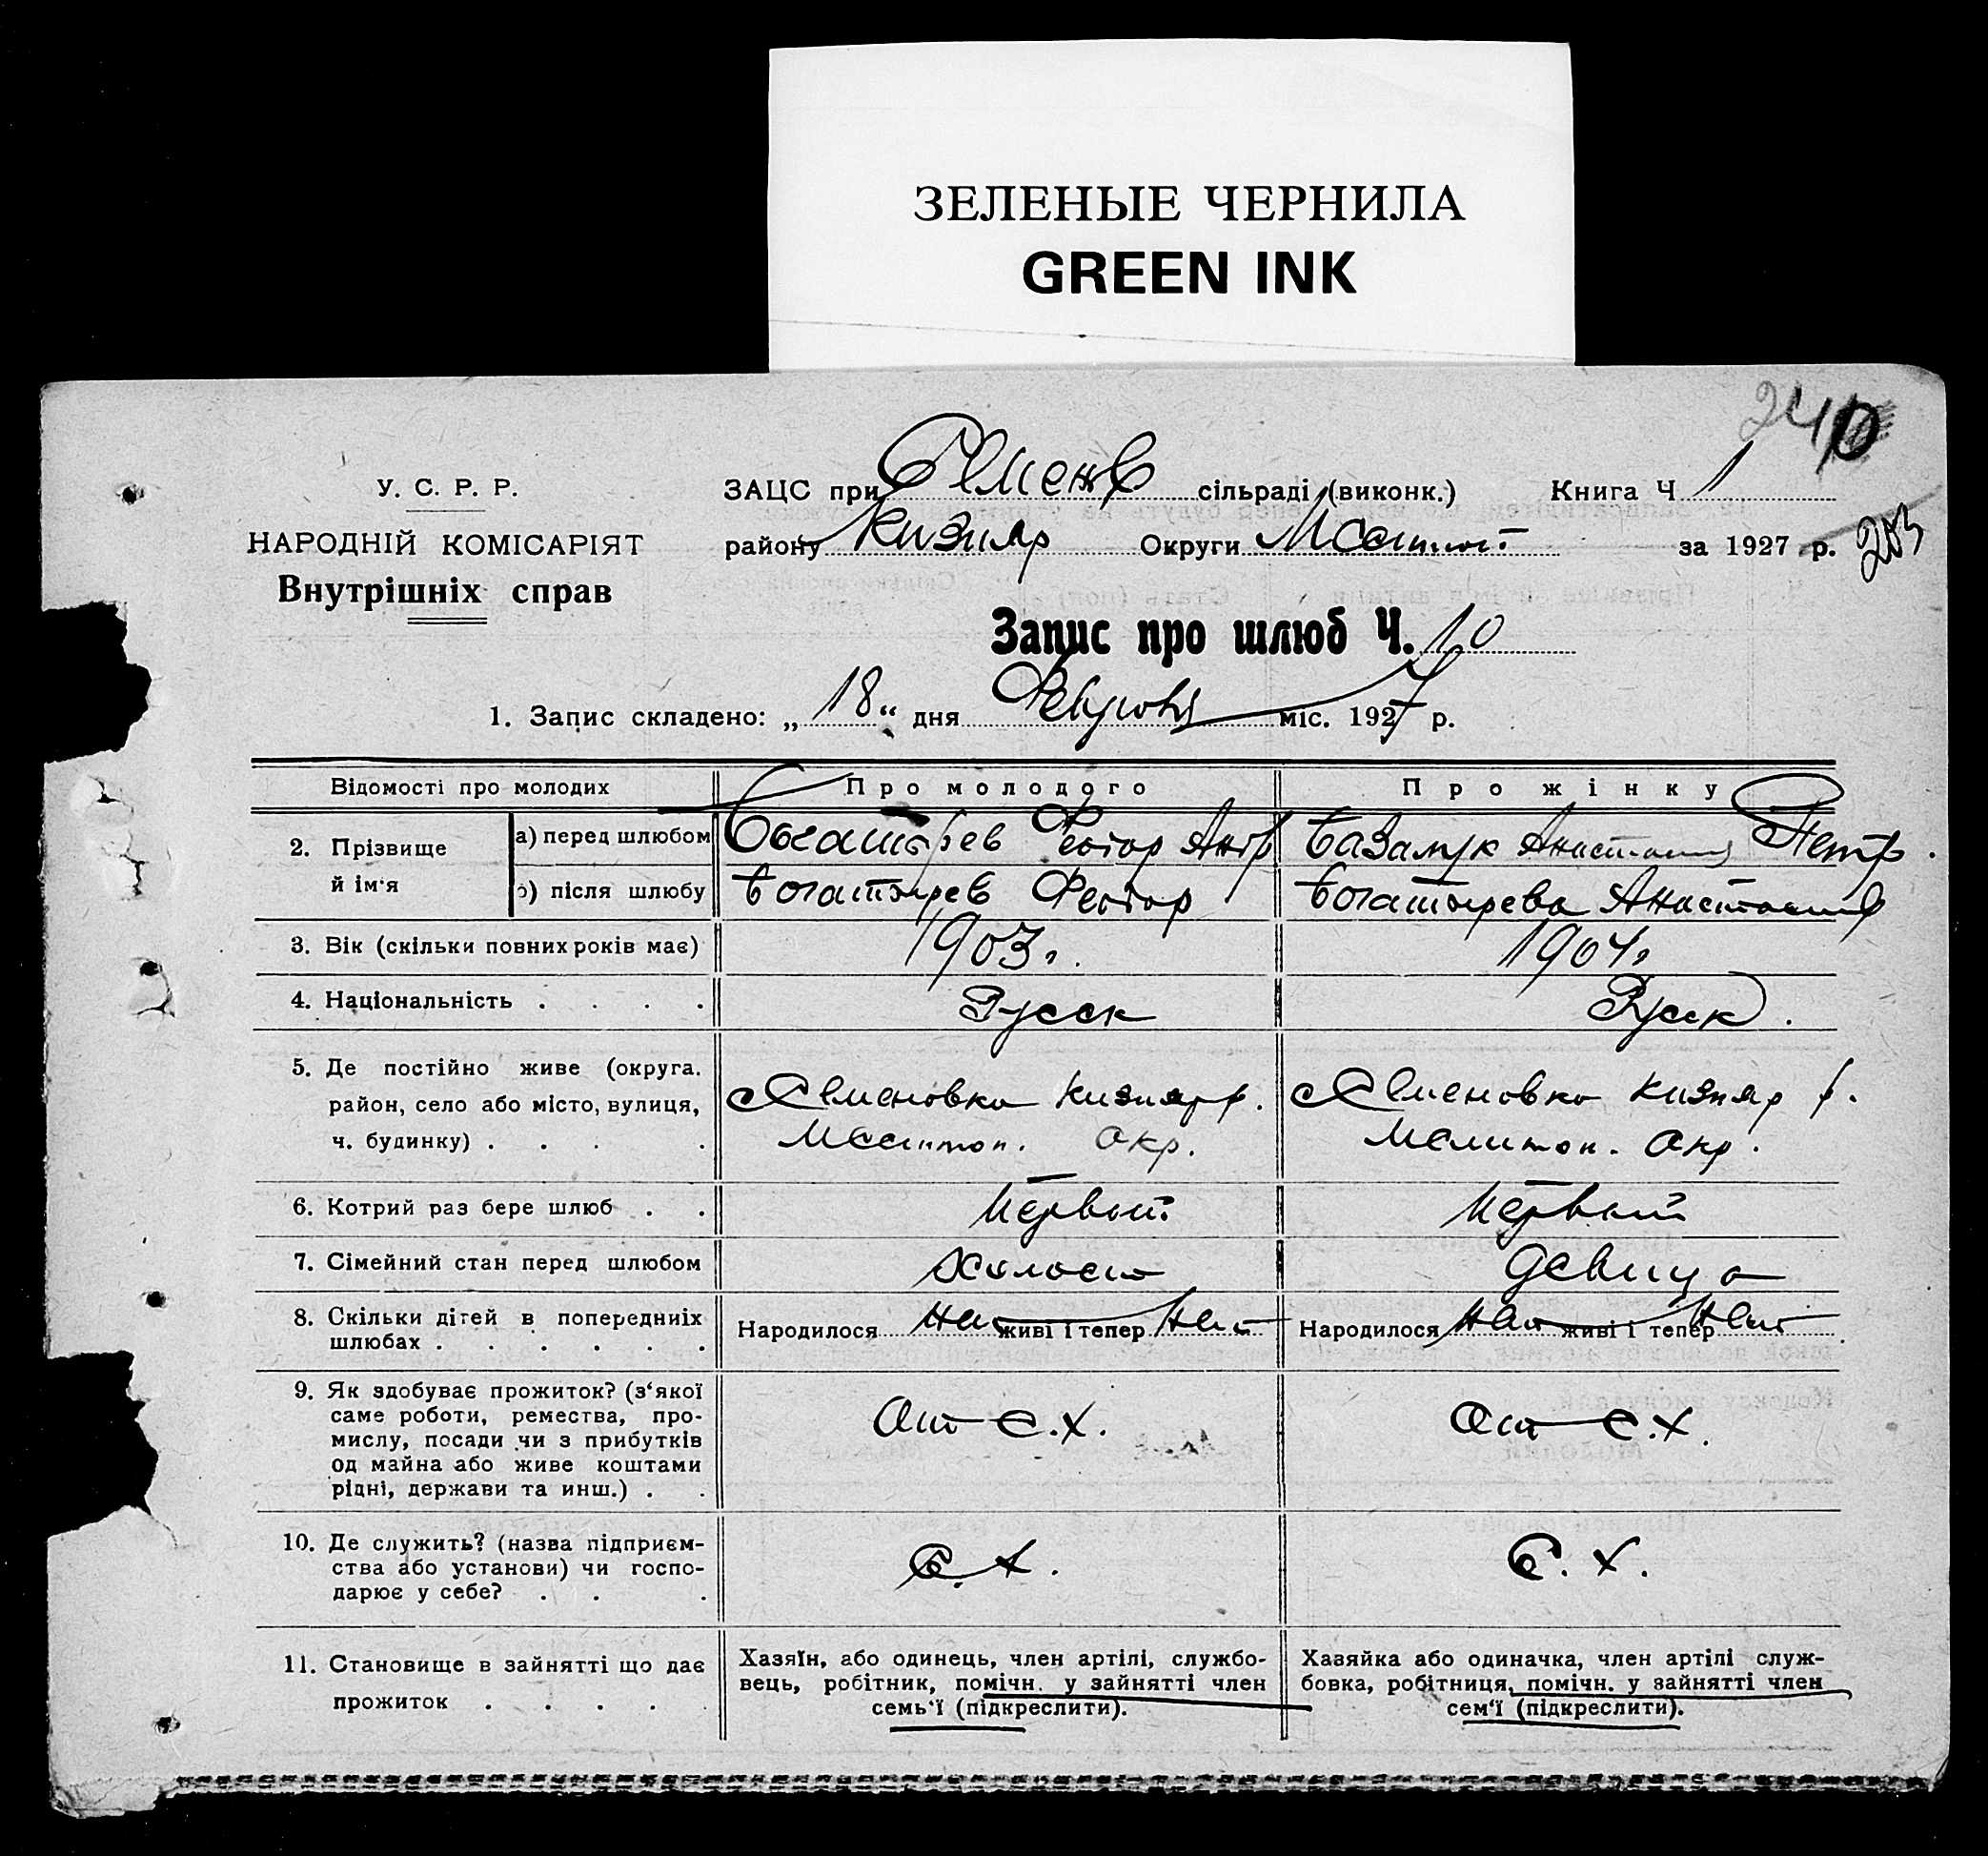 ЗЕЛЕНЫЕ ЧЕРНИЛА
GREEN INK
240
У. С. Р. Р.
НАРОДНІЙ КОМІСАРІЯТ
Внутрішніх справ
ЗАЦС при Семенов сільраді (виконк.) Книга Ч 1
району Кизияр Округи за 1927 р.
Запис про шлюб Ч. 10
1. Запис складено: „ 18 “ дня міс. 1927 р.
Відомості про молодих Про молодого Про жінку
2. Прізвище й ім‘я
а) перед шлюбом Богатырев Федор Базалук Анастасия Петр.
б) після шлюбу Богатырев Федор Богатырева Анастасия
3. Вік (скільки повних років має) 1903 г. 1904 г.
4. Національність . . . . Русск Русск.
5. Де постійно живе (округа.
район, село або місто, вулиця,
ч. будинку) . . . .
Семеновка Кизияр р.
Мелитоп. Окр.
Семеновка Кизияр р.
Мелитоп. Окр.
6. Котрий раз бере шлюб . . Первый Первый
7. Сімейний стан перед шлюбом Холост Девица
8. Скільки дітей в попередніх
шлюбах . . . . . .
Народилося Нет живі і тепер Нет Народилося Нет живі і тепер Нет
9. Як здобуває прожиток? (з‘якої
саме роботи, ремества, про-
мислу, посади чи з прибутків
од майна або живе коштами
рідні, держави та инш.) . .
От С.Х. От С.Х.
10. Де служить? (назва підприєм-
ства або установи) чи госпо-
дарює у себе? . . .
С.Х. С.Х.
11. Становище в зайнятті що дає
прожиток . . . . .
Хазяїн, або одинець, член артілі, службо-
вець, робітник, помічн. у зайнятті член
семь‘ї (підкреслити).
Хазяйка або одиначка, член артілі служ-
бовка, робітниця, помічн. у зайнятті член
сем‘ї (підкреслити).